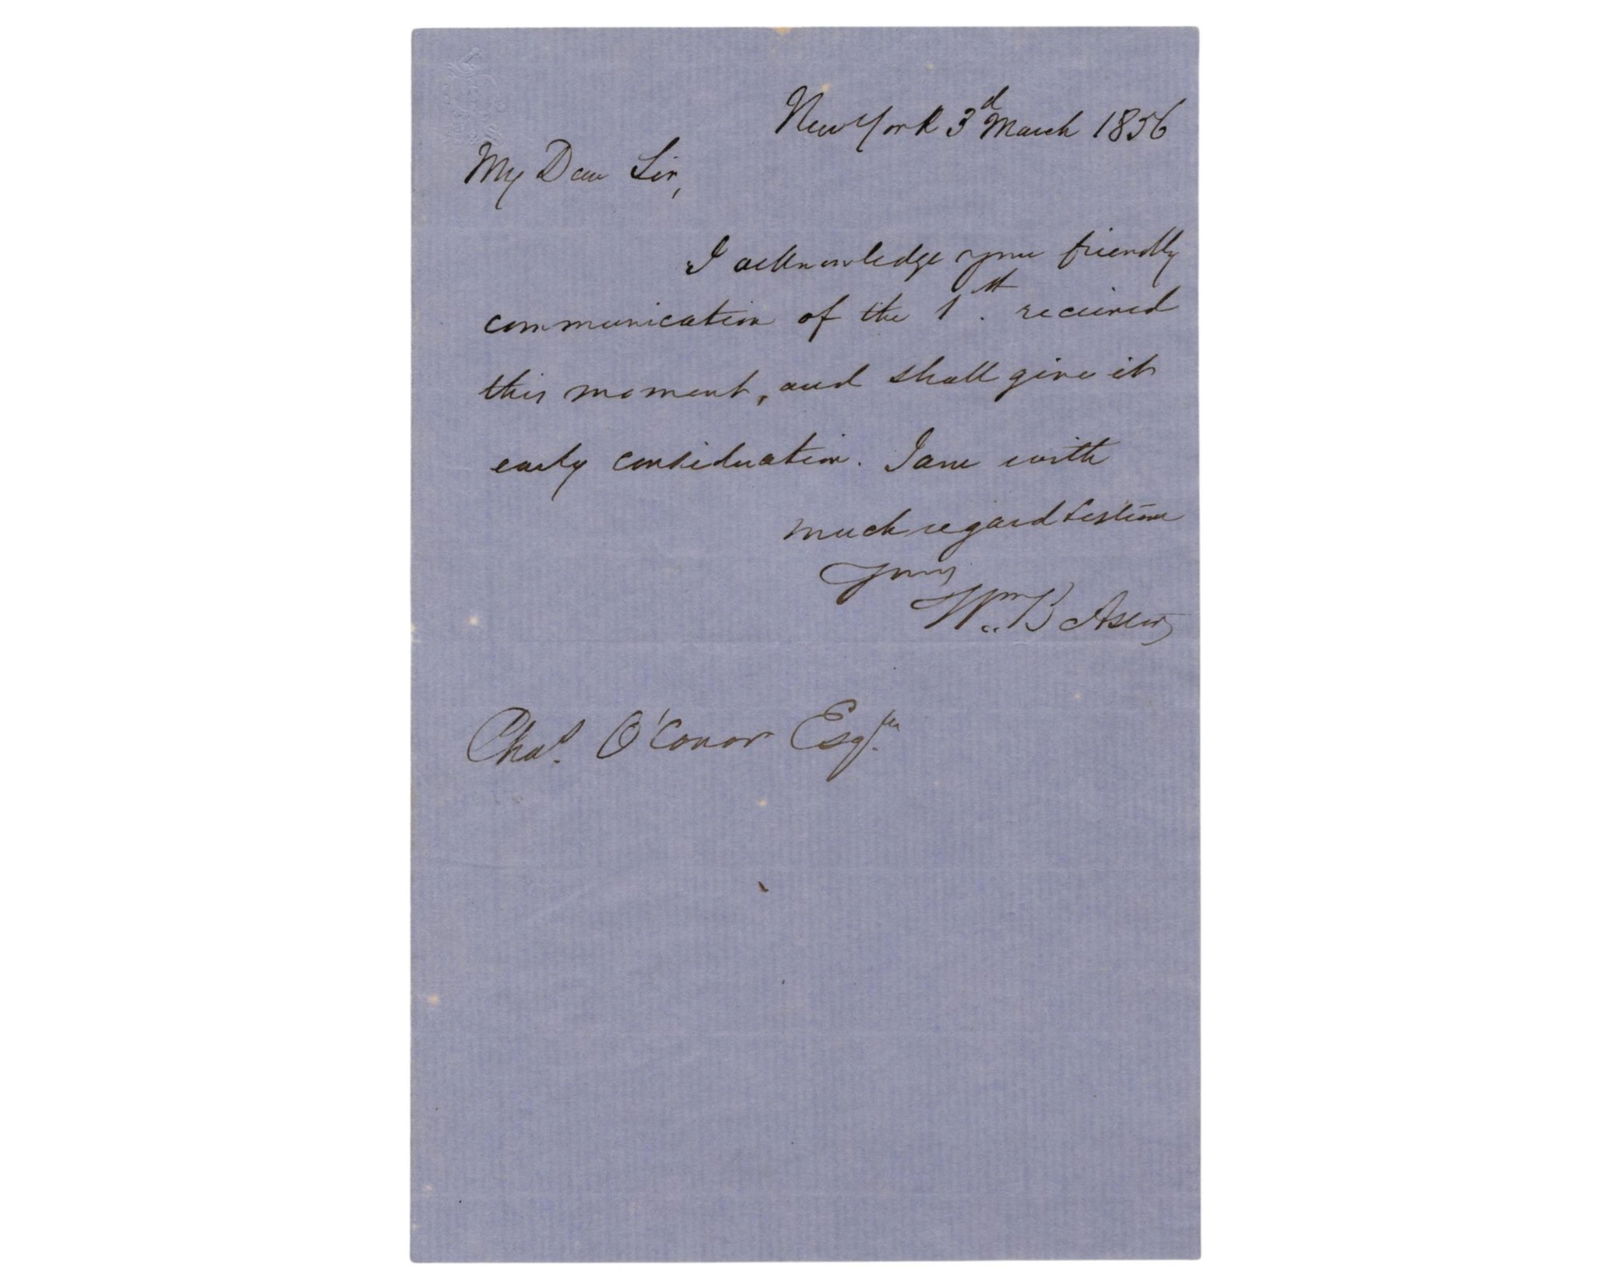 New York 3d March 1856
My Dear Sir,
I acknowledge your friendly
communication of the 1st. received
this moment, and shall give it
early consideration. I am with
much regard & esteem
Yours
Wm B Astor
Chas. O'Conor Esqre.